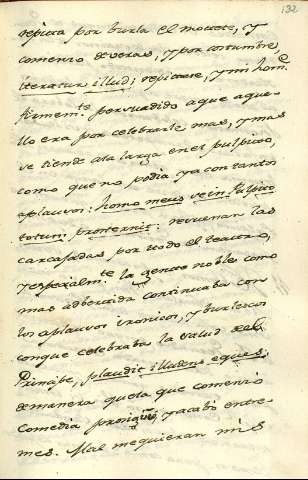 132
repitta por burla el mottete, y
comenso deveras, y por costumbre,
iteratur illud; repitese, y mi hom.e
firmem.te persuadido a que aque-
llo era por celebrarle mas, y mas
se tiende ala larga en el pulpito,
como que no podia ya con tantos
aplausos: homo meus se in Pulpito
totum prosternit: resuenan las
carcajadas por todo el teatro,
y especialm.te la gente noble como
mas advertida continuaba con
los aplausos ironicos, y burlescos
conque celebraba la salud del
Principe, plaudit illudens eques;
demanera que la que comensó
Comedia prosiguió y acabó entre-
mes. Mal me quieran mis